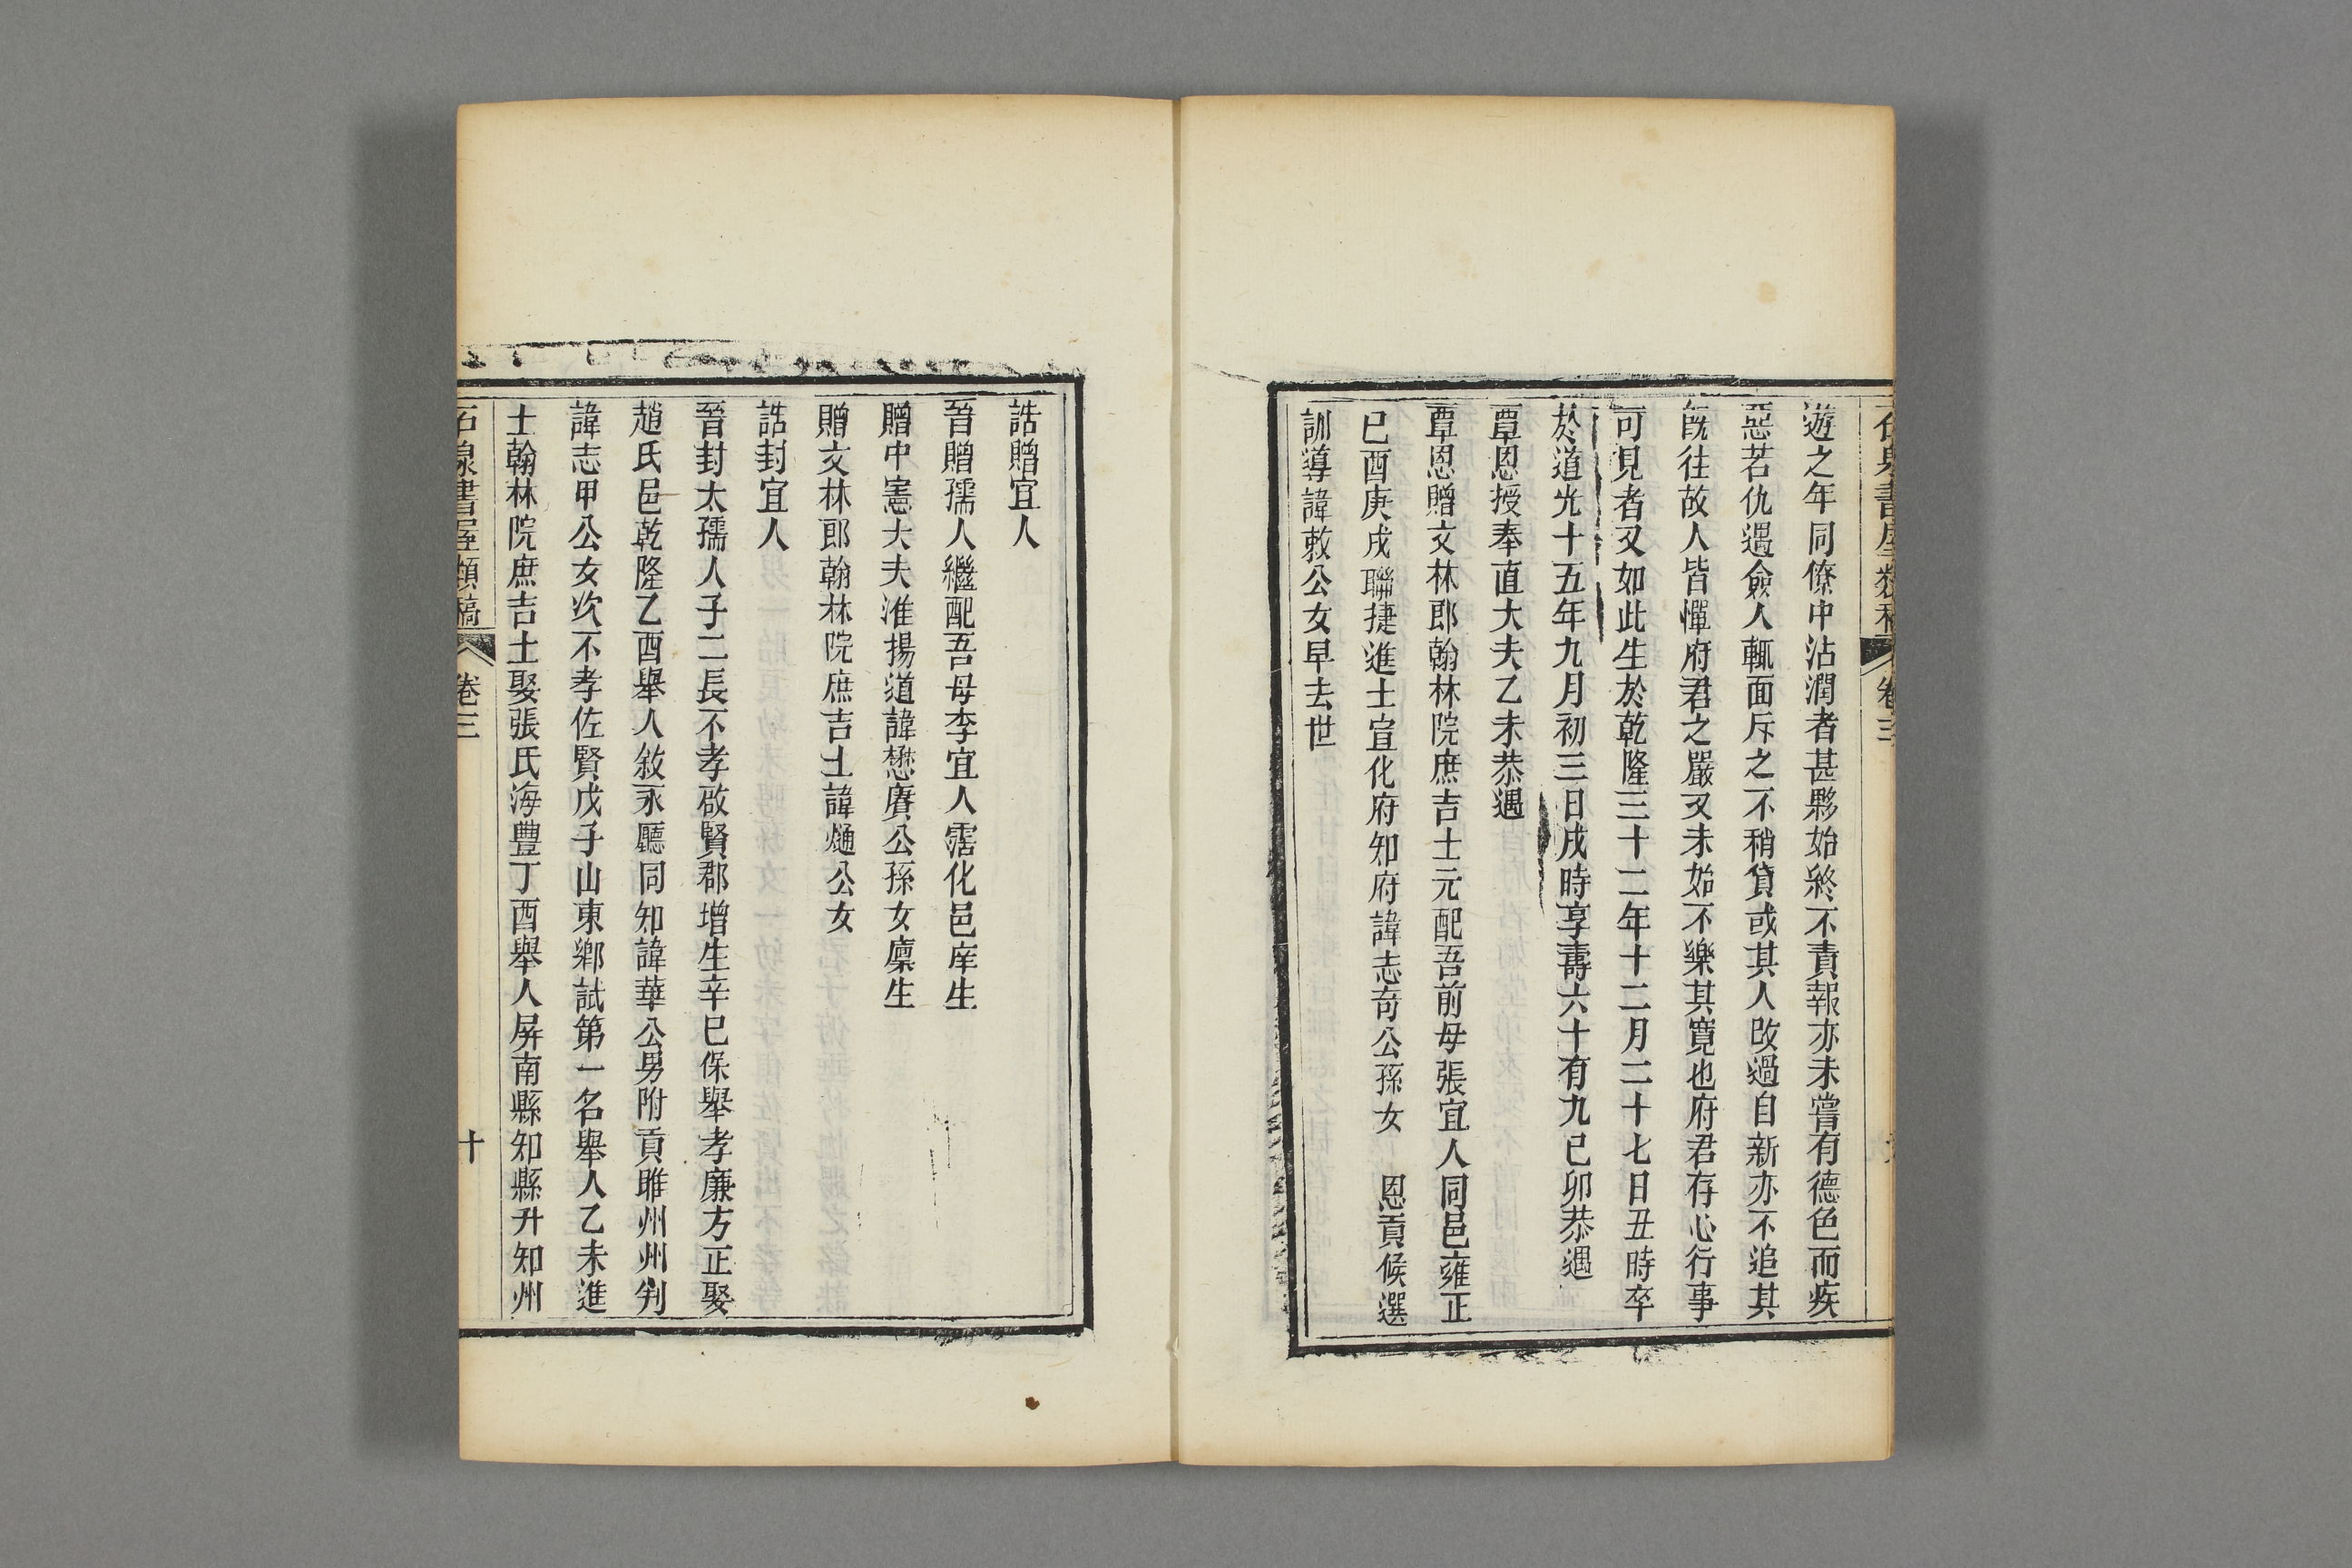 遊之年同僚中沾潤者甚夥始終不責報亦未嘗有德色而疾
惡若仇遇僉人輒面斥之不稍貸或其人改過自新亦不追其
既往故人皆憚府君之嚴又未始不樂其寬也府君存心行事
可見者又如此生於乾隆三十二年十二月二十七日丑時卒
於道光十五年九月初三日戌時享壽六十有九已卯恭遇
覃恩授奉直大夫乙未恭遇
覃恩贈文林郎翰林院庶吉士元配吾前母張宜人同邑雍正
已酉庚戌聯捷進士宣化府知府諱志奇公孫女　恩貢候選
訓導諱敕公女早去世
誥贈宜人
晉贈孺人繼配吾母李宜人霑化邑庠生
贈中憲大夫淮揚道諱懋賡公孫女廪生
贈文林郎翰林院庶吉士諱㷶公女
誥封宜人
晉封太孺人子二長不孝啟賢郡增生辛巳保舉孝廉方正娶
趙氏邑乾隆乙酉舉人敘永廳同知諱華公男附貢雎州州判
諱志甲公女次不孝佐賢戊子山東鄉試第一名舉人乙未進
士翰林院庶吉士娶張氏海豐丁酉舉人屏南縣知縣升知州
石泉書屋類稿　卷三　十